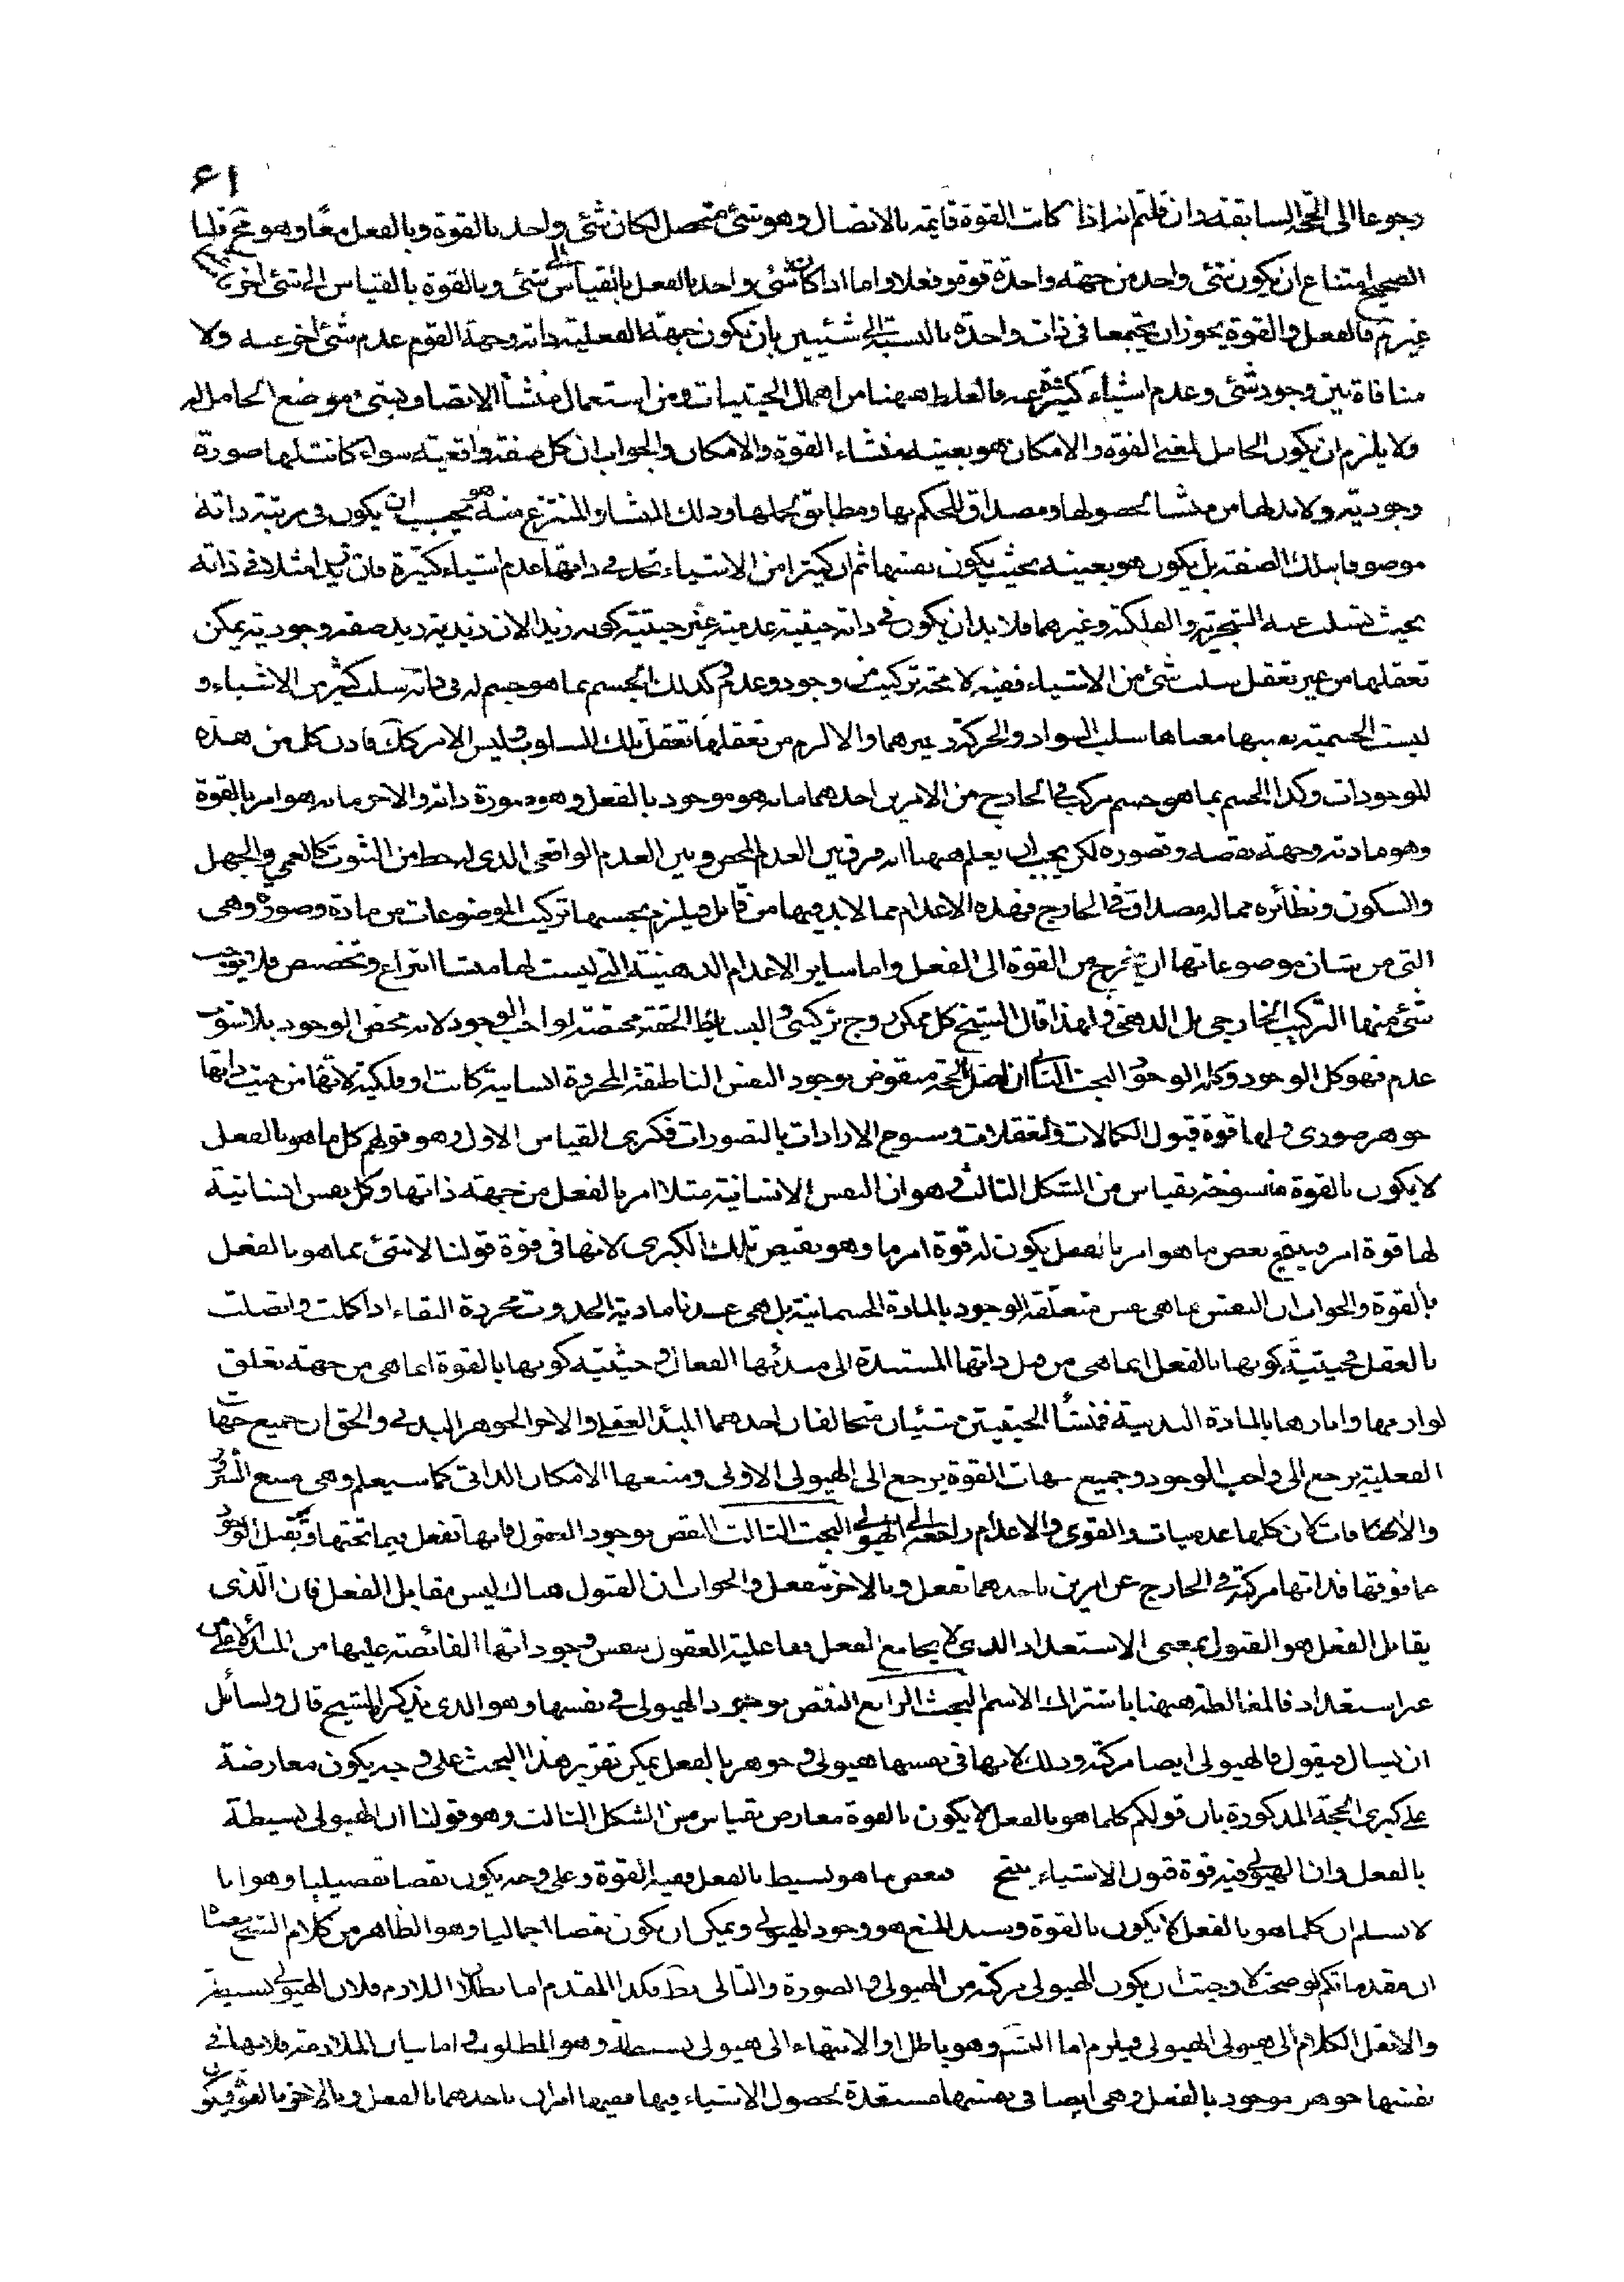 ٦١
رجوعا الى الحجة السابقة وان قلتم انه اذا كانت القوة قايمة بالاتصال وهو شئ متصل لكان شئ واحد بالقوة وبالفعل معا وهو مح قلنا
الصحيح امتناع ان يكون شئ واحد من جهة واحدة قوة وفعلا واما اذا كان شئ واحد بالفعل بالقياس الى شئ وبالقوة بالقياس الى شئ اخر
غيره فالفعل والقوة يجوز ان يجتمعا في ذات واحدة بالنسبة الى شئيين بان يكون جهة الفعلية ذاته وجهة القوة عدم شئ اخر عنه ولا
منافاة بين وجود شئ وعدم اشياء كثيرة عنه فالغلط ههنا من اهمال الحيثيات ومن استعمال منشأ الاتصاف بشئ موضع الحامل له
ولا يلزم ان يكون الحامل لمعنى القوة والامكان هو بعينه منشاء القوة والامكان والجواب ان كل صفة واقعية سواء كانت لها صورة
وجودية ولا بد لها من منشا لحصولها ومصداق للحكم بها ومطابق لحملها وذلك المنشا والمنتزع منه هو يجب ان يكون في مرتبة ذاته
موصوفا بتلك الصفة بل يكون هو بعينه بحيث يكون بعينها ثم ان كثيرا من الاشياء تحد في ذاتها عدم اشياء كثيرة فان زيدا مثلا في ذاته
بحيث تسلب عنه الشجرية والفلكية وغيرهما فلا بد ان يكون في ذاته حيثية عدمية غير حيثية كونه زيدا لان زيدية زيد صفة وجودية يمكن
تعقلها من غير تعقل سلب شئ من الاشياء ففيه لا محة تركيب من وجود وعدم وكذلك الجسم بما هو جسم له في ذاته سلب كثير من الاشياء و
ليست الجسمية بعينها معناها سلب السواد والحركة وغيرهما والا لزم من تعقلها تعقل تلك السلوب وليس الامر كك فاذن كل من هذه
الموجودات وكذا الجسم بما هو جسم مركب في الخارج من الامرين احدهما ما به هو موجود بالفعل وهو صورة ذاته والاخر ما به هو امر بالقوة
وهو مادته وجهة نقصه وقصوره لكن يجب ان يعلم ههنا انه فرق بين العدم المحض وبين العدم الواقعي الذي له حظ من الثبوت كالعمى والجهل
والسكون ونظائره مما له مصداق في الخارج فهذه الاعدام مما لا بد فيها من قابل فيلزم بحسبها تركيب الموضوعات من مادة وصورة وهي
التي من شان موضوعاتها ان يخرج من القوة الى الفعل واما ساير الاعدام الذهنية التي ليست لها منشا انتزاع وتخصص فلا يوجب
شئ منها التركيب الخارجي بل الذهني ولهذا قال الشيخ كل ممكن زوج تركيبي والبساطة الحقة مختصة لواجب الوجود لانه محض الوجود بلا شوب
عدم فهو كل الوجود وكله الوجود البحث الثاني ان اصل الحجة منقوض بوجود النفس الناطقة المجردة انسانية كانت او فلكية لانها من حيث ذاتها
جوهر صوري ولها قوة قبول الكمالات والتعقلات وسنوح الارادات بالتصورات فكبرى القياس الاول وهو قولهم كل ما هو بالفعل
لا يكون بالقوة منسوخة بقياس من الشكل الثالث وهو ان النفس الانسانية مثلا امر بالفعل من جهة ذاتها وكل نفس انسانية
لها قوة امر فينتج بعض ما هو امر بالفعل يكون له قوة امر ما وهو نقيض تلك الكبرى لانها في قوة قولنا لا شئ مما هو بالفعل
بالقوة والجواب ان النفس بما هي نفس متعلقة الوجود بالمادة الجسمانية بل هي عندنا مادية الحدوث مجردة البقاء اذا كملت واتصلت
بالعقل فحيثية كونها بالفعل انما هي من قبل ذاتها المستندة الى مبدئها الفعال وحيثية كونها بالقوة انما هي من جهة تعلق
لوازمها واثارها بالمادة البدنية فمنشأ الحيثيتين شيئان متخالفان احدهما المبدء العقلي والاخر الجوهر البدني والحق ان جميع جهات
الفعلية يرجع الى واجب الوجود وجميع جهات القوة يرجع الى الهيولى الاولى ومنبعها الامكان الذاتي كما سيعلم وهي منبع الشرور
والافات كان كلها عدميات والقوى والاعدام راجعة الى الهيولى البحث الثالث النقض بوجود العقول فانها تفعل فيما تحتها وتقبل الوجود
مما فوقها فذاتها مركبة في الخارج عن امرين باحدهما تفعل وبالاخر تنفعل والجواب ان القبول هناك ليس مقابل الفعل فان الذي
يقابل الفعل هو القبول بمعنى الاستعداد الذي لا يجامع الفعل وفاعلية العقول بنفس وجوداتها الفائضة عليها من المبدأ الاعلى من
غير استعداد فالمغالطة ههنا باشتراك الاسم البحث الرابع النقض بوجود الهيولى في نفسها وهو الذي يذكر الشيخ قال ولسائل
ان يسال ويقول فالهيولى ايضا مركبة وذلك لانها في نفسها هيولى وجوهر بالفعل يمكن تقرير هذا البحث على وجه يكون معارضة
على كبرى الحجة المذكورة بان قولكم كلما هو بالفعل لا يكون بالقوة معارض بقياس من الشكل الثالث وهو قولنا ان الهيولى بسيطة
بالفعل وان الهيولى فيه قوة قبول الاشياء ينتج فبعض ما هو بسيط بالفعل وفيه القوة وعلى وجه يكون نقضا تفصيليا وهو انا
لا نسلم ان كلما هو بالفعل لا يكون بالقوة وسند المنع هو وجود الهيولى ويمكن ان يكون نقضا اجماليا وهو الظاهر من كلام الشيخ
ان مقدماتكم لو صحت لاوجبت ان يكون الهيولى مركبة من الهيولى والصورة والتالى بط فكذا المقدم اما بطلان اللازم فلان الهيولى بسيطة
والا نقل الكلام الى هيولى الهيولى فيلزم اما التسلسل وهو باطل او الانتهاء الى هيولى بسيطة وهو المطلوب اما بيان الملازمة فلانها في
نفسها جوهر موجود بالفعل وهي ايضا في نفسها مستعدة لحصول الاشياء فيها ففيها امران باحدهما بالفعل وبالاخر بالقوة فيكون